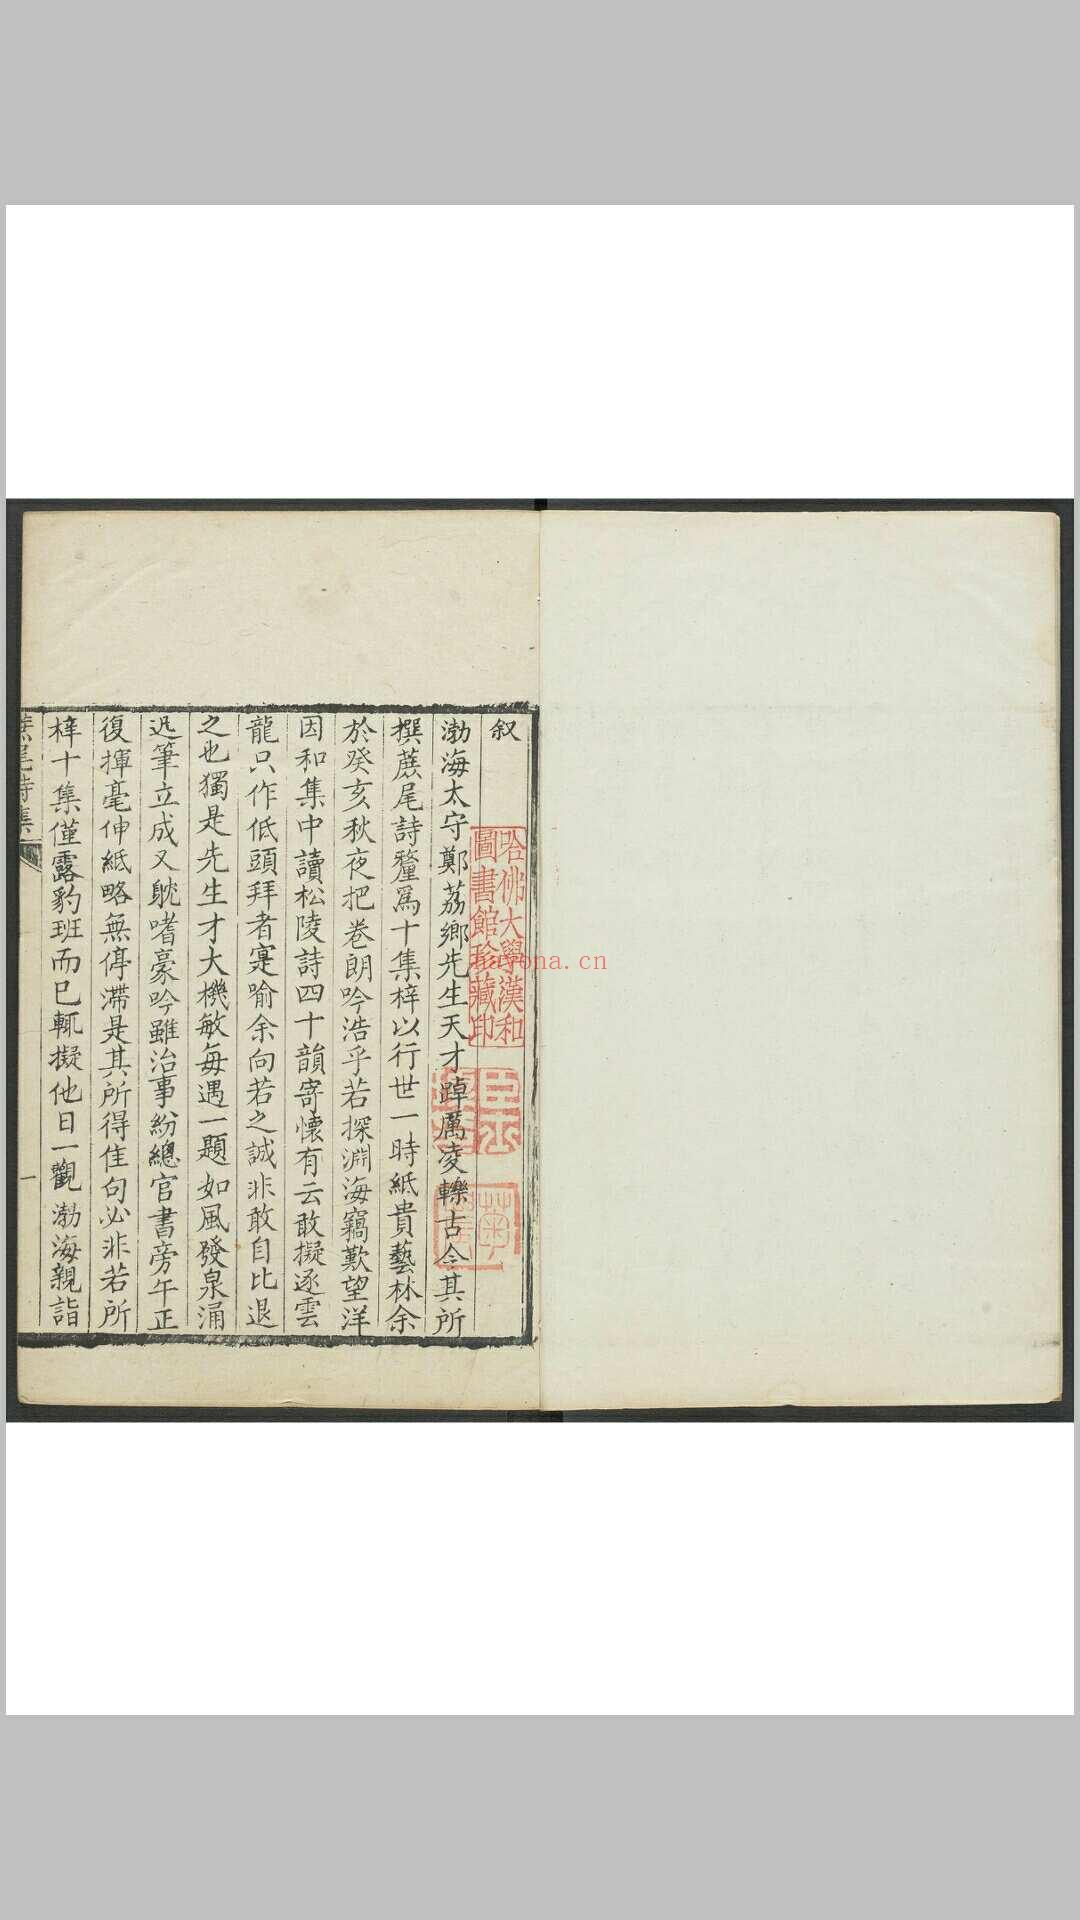 叙
渤海太守鄭荔鄉先生天才踔厲凌轢古今其所
撰蔗尾詩釐爲十集梓以行世一時紙貴藝林余
於癸亥秋夜把卷朗吟浩乎若探淵海竊歎望洋
因和集中讀松陵詩四十韻寄懷有云敢擬逐雲
龍只作低頭拜者寔喻余向若之誠非敢自比退
之也獨是先生才大機敏每遇一題如風發泉涌
迅筆立成又躭嗜豪吟雖治事紛總官書旁午正
復揮毫伸紙略無停滯是其所得佳句必非若所
梓十集僅露豹班而已輒擬他日一觀渤海親詣
蔗尾詩集
一
哈佛大學漢和
圖書館珍藏印
nayona.cn